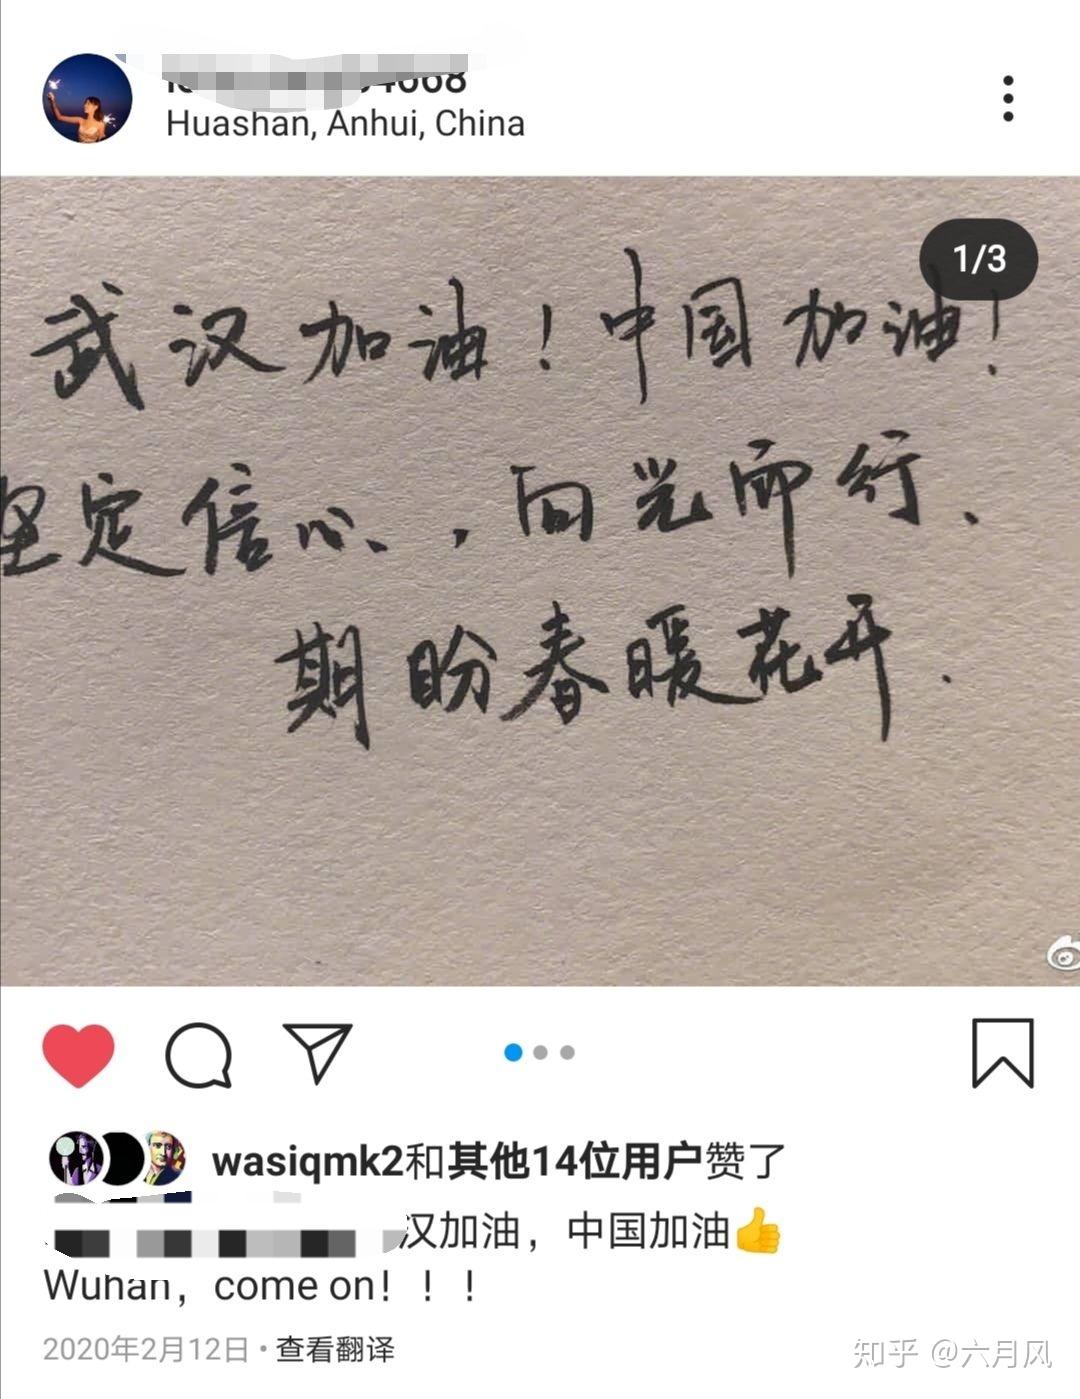 4668
Huashan, Anhui, China
1/3
武汉加油！中国加油！
坚定信心，向光而行、
期盼春暖花开.
wasiqmk2和其他14位用户赞了
汉加油，中国加油👍
Wuhan，come on！！！
2020年2月12日 · 查看翻译
知乎 @六月风